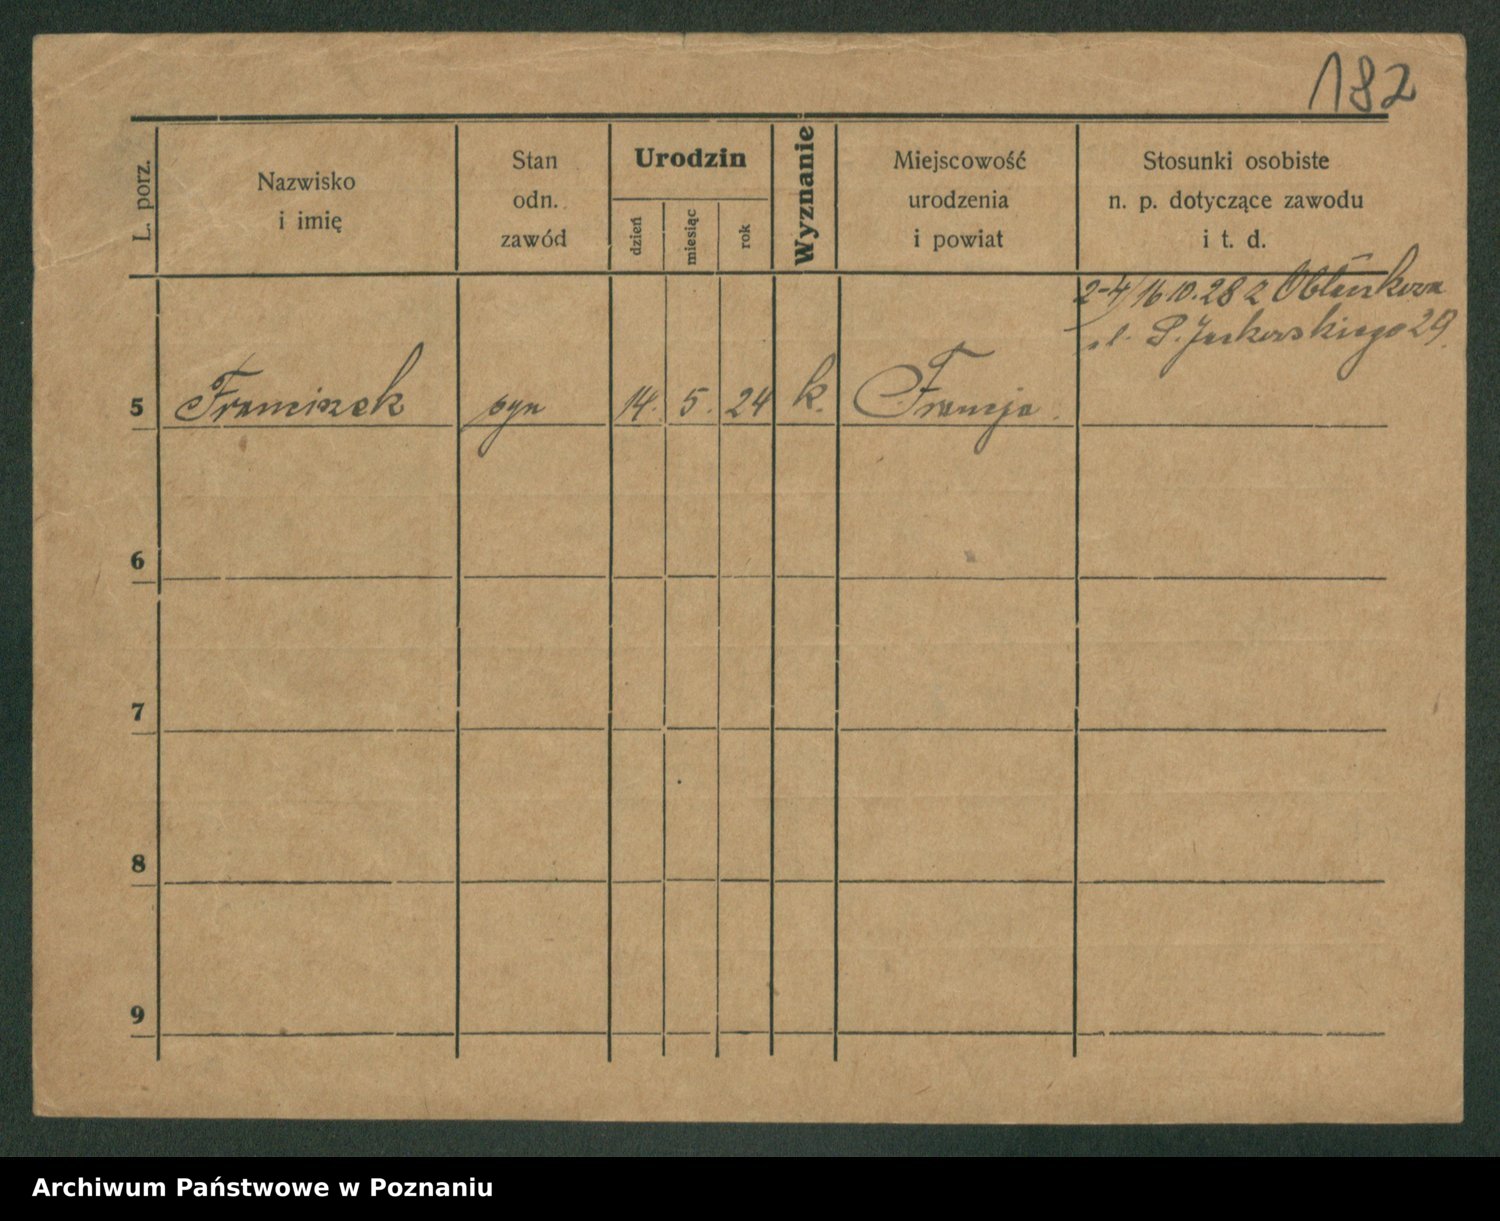 182
L. porz.
Nazwisko
i imię
Stan
odn.
zawód
Urodzin
dzień
miesiąc
rok
Wyznanie
Miejscowość
urodzenia
i powiat
Stosunki osobiste
n. p. dotyczące zawodu
i t. d.
2-4/16 10. 28 z
29.
5 Franciszek syn 14. 5. 24 k. Francja.
6
7
8
9
Archiwum Państwowe w Poznaniu